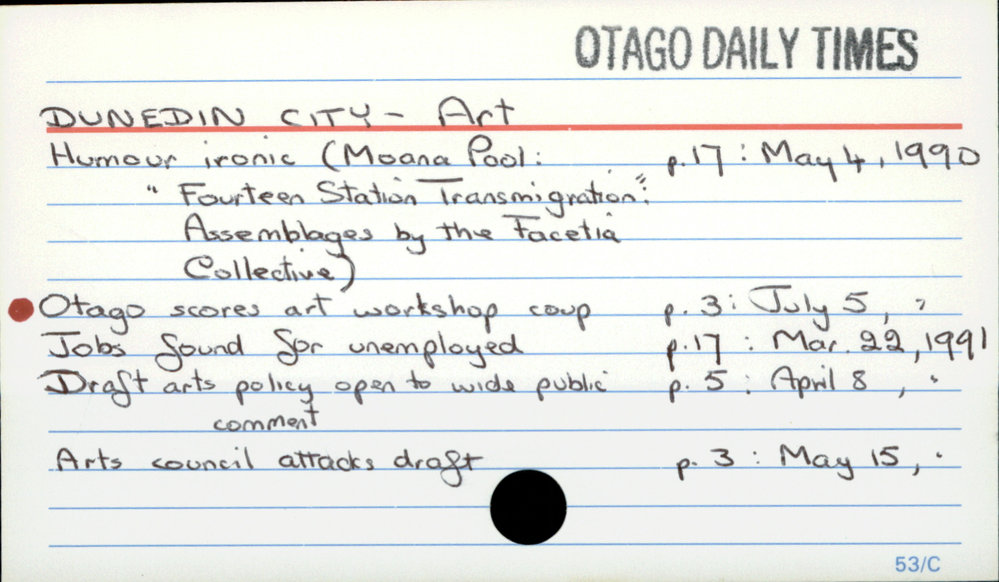 OTAGO DAILY TIMES
DUNEDIN CITY - Art
Humour ironic (Moana Pool: p.17 : May 4, 1990
"Fourteen Station Transmigration":
Assemblages by the Facetia
Collective)
Otago scores art workshop coup p. 3 : July 5, "
Jobs found for unemployed p.17 : Mar. 22, 1991
Draft arts policy open to wide public p. 5 : April 8, "
comment
Arts council attacks draft p. 3 : May 15, "
53/C